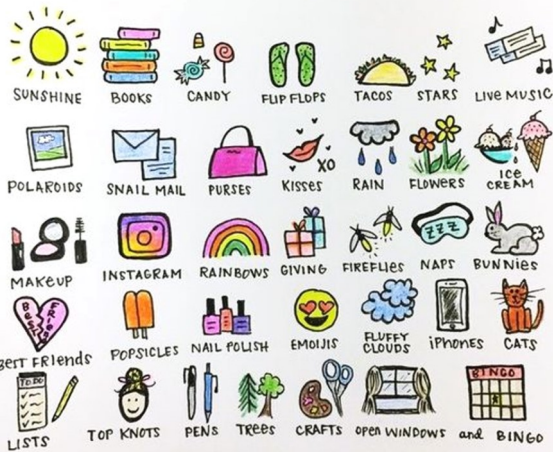 SUNSHINE
BOOKS
CANDY
FLIP FLOPS
TACOS
STARS
LIVE MUSIC
POLAROIDS
SNAIL MAIL
PURSES
XO
KISSES
RAIN
FLOWERS
ICE
CREAM
MAKEUP
INSTAGRAM
RAINBOWS
GIVING
FIREFLIES
ZZZ
NAPS
BUNNIES
BEST FRIENDS
BEST FRIENDS
POPSICLES
NAIL POLISH
EMOIJIS
FLUFFY
CLOUDS
iPHONES
CATS
TO DO
LISTS
TOP KNOTS
PENS
TREES
CRAFTS
OPEN WINDOWS
and
BINGO
BINGO